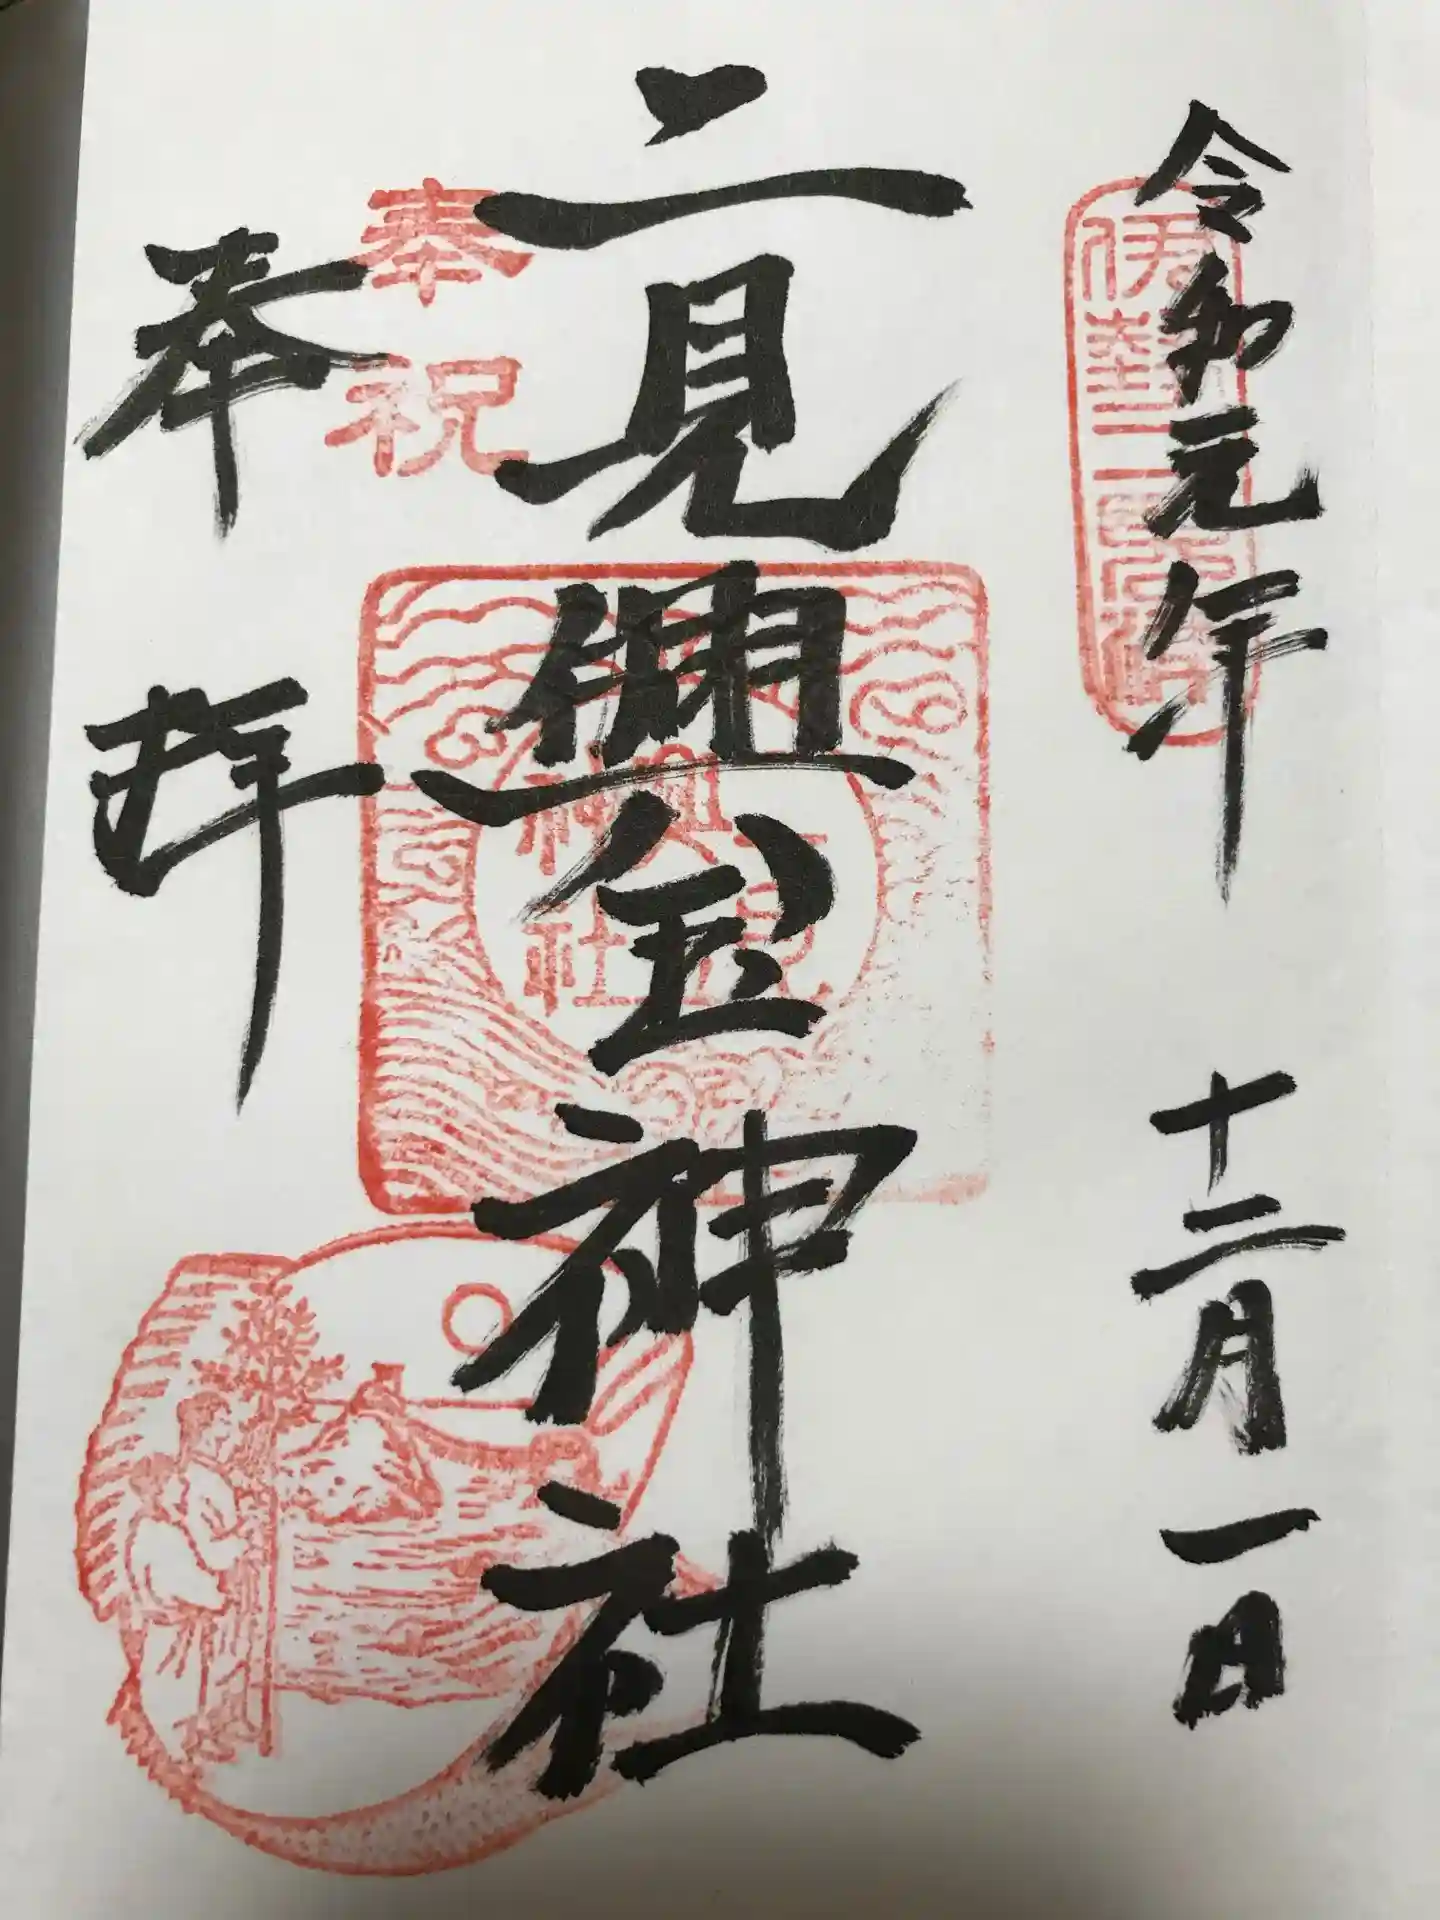 令和元年 十二月一日
伊勢二見浦
二見興玉神社
二見
興玉
神社
奉祝
奉拝